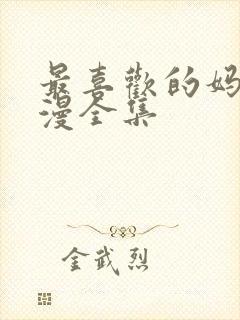 最喜歡的妈
漫全集
金武烈